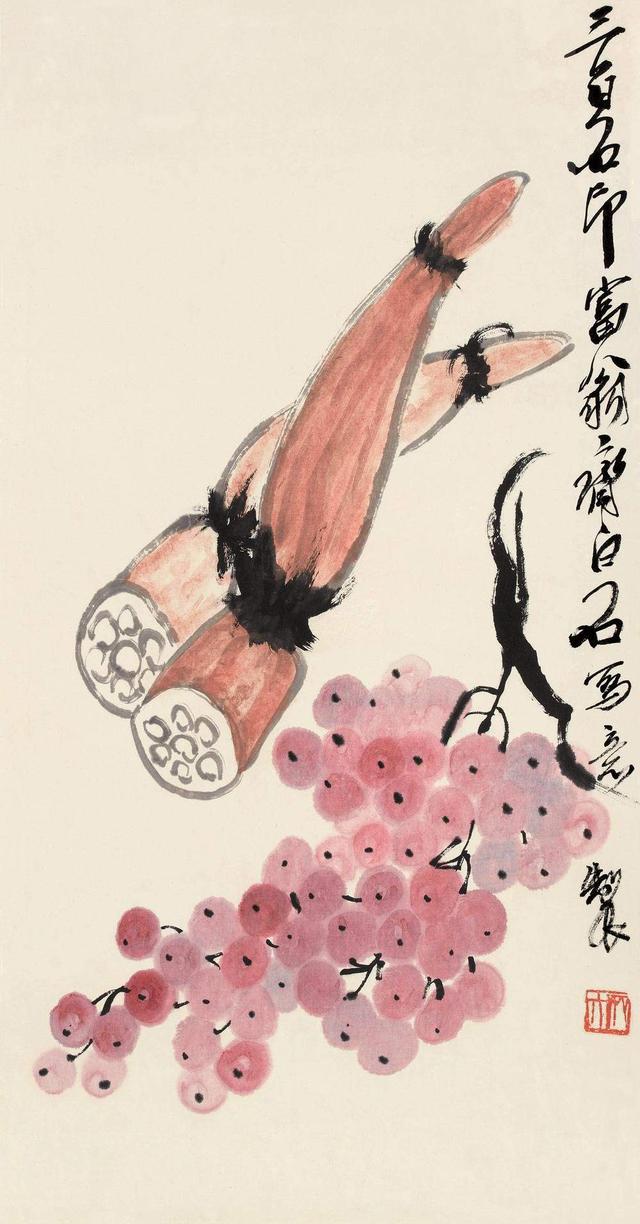 三百石印富翁齊白石寫意製